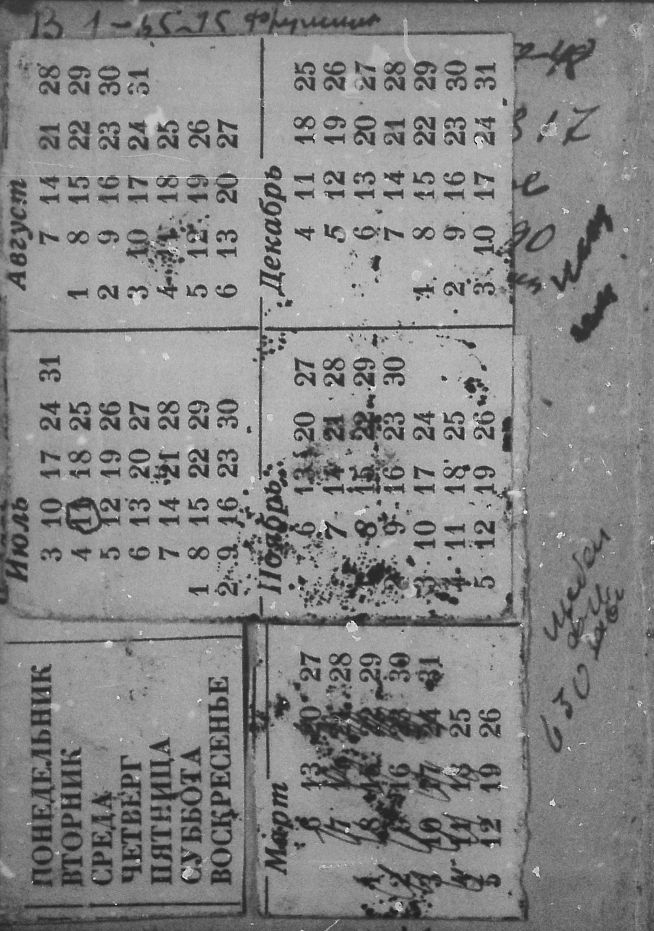 В 1-45-75
Июль
3 10 17 24 31
4 11 18 25
5 12 19 26
6 13 20 27
7 14 21 28
1 8 15 22 29
2 9 16 23 30
Август
7 14 21 28
1 8 15 22 29
2 9 16 23 30
3 10 17 24 31
4 11 18 25
5 12 19 26
6 13 20 27
Ноябрь
6 13 20 27
7 14 21 28
1 8 15 22 29
2 9 16 23 30
3 10 17 24
4 11 18 25
5 12 19 26
Декабрь
4 11 18 25
5 12 19 26
6 13 20 27
7 14 21 28
1 8 15 22 29
2 9 16 23 30
3 10 17 24 31
ПОНЕДЕЛЬНИК
ВТОРНИК
СРЕДА
ЧЕТВЕРГ
ПЯТНИЦА
СУББОТА
ВОСКРЕСЕНЬЕ
Март
6 13 20 27
7 14 21 28
1 8 15 22 29
2 9 16 23 30
3 10 17 24 31
4 11 18 25
5 12 19 26
630